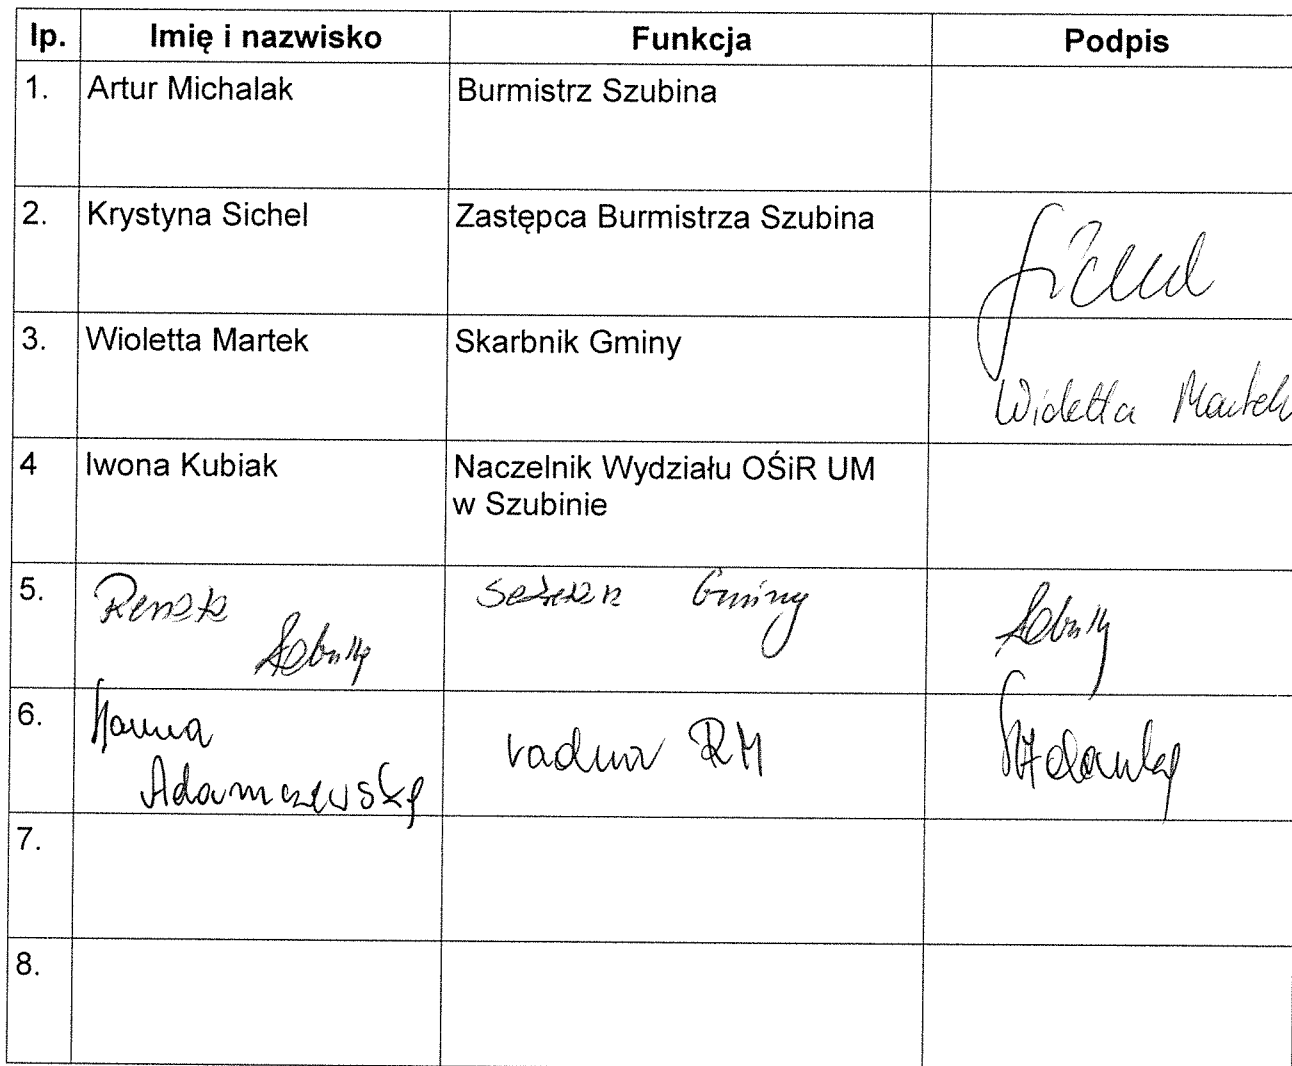 lp. Imię i nazwisko Funkcja Podpis
1. Artur Michalak Burmistrz Szubina
2. Krystyna Sichel Zastępca Burmistrza Szubina
3. Wioletta Martek Skarbnik Gminy Wioletta Martek
4 Iwona Kubiak Naczelnik Wydziału OŚiR UM
w Szubinie
5. Renata Gminy
6. Hanna radna RM
Adamczewska
7.
8.